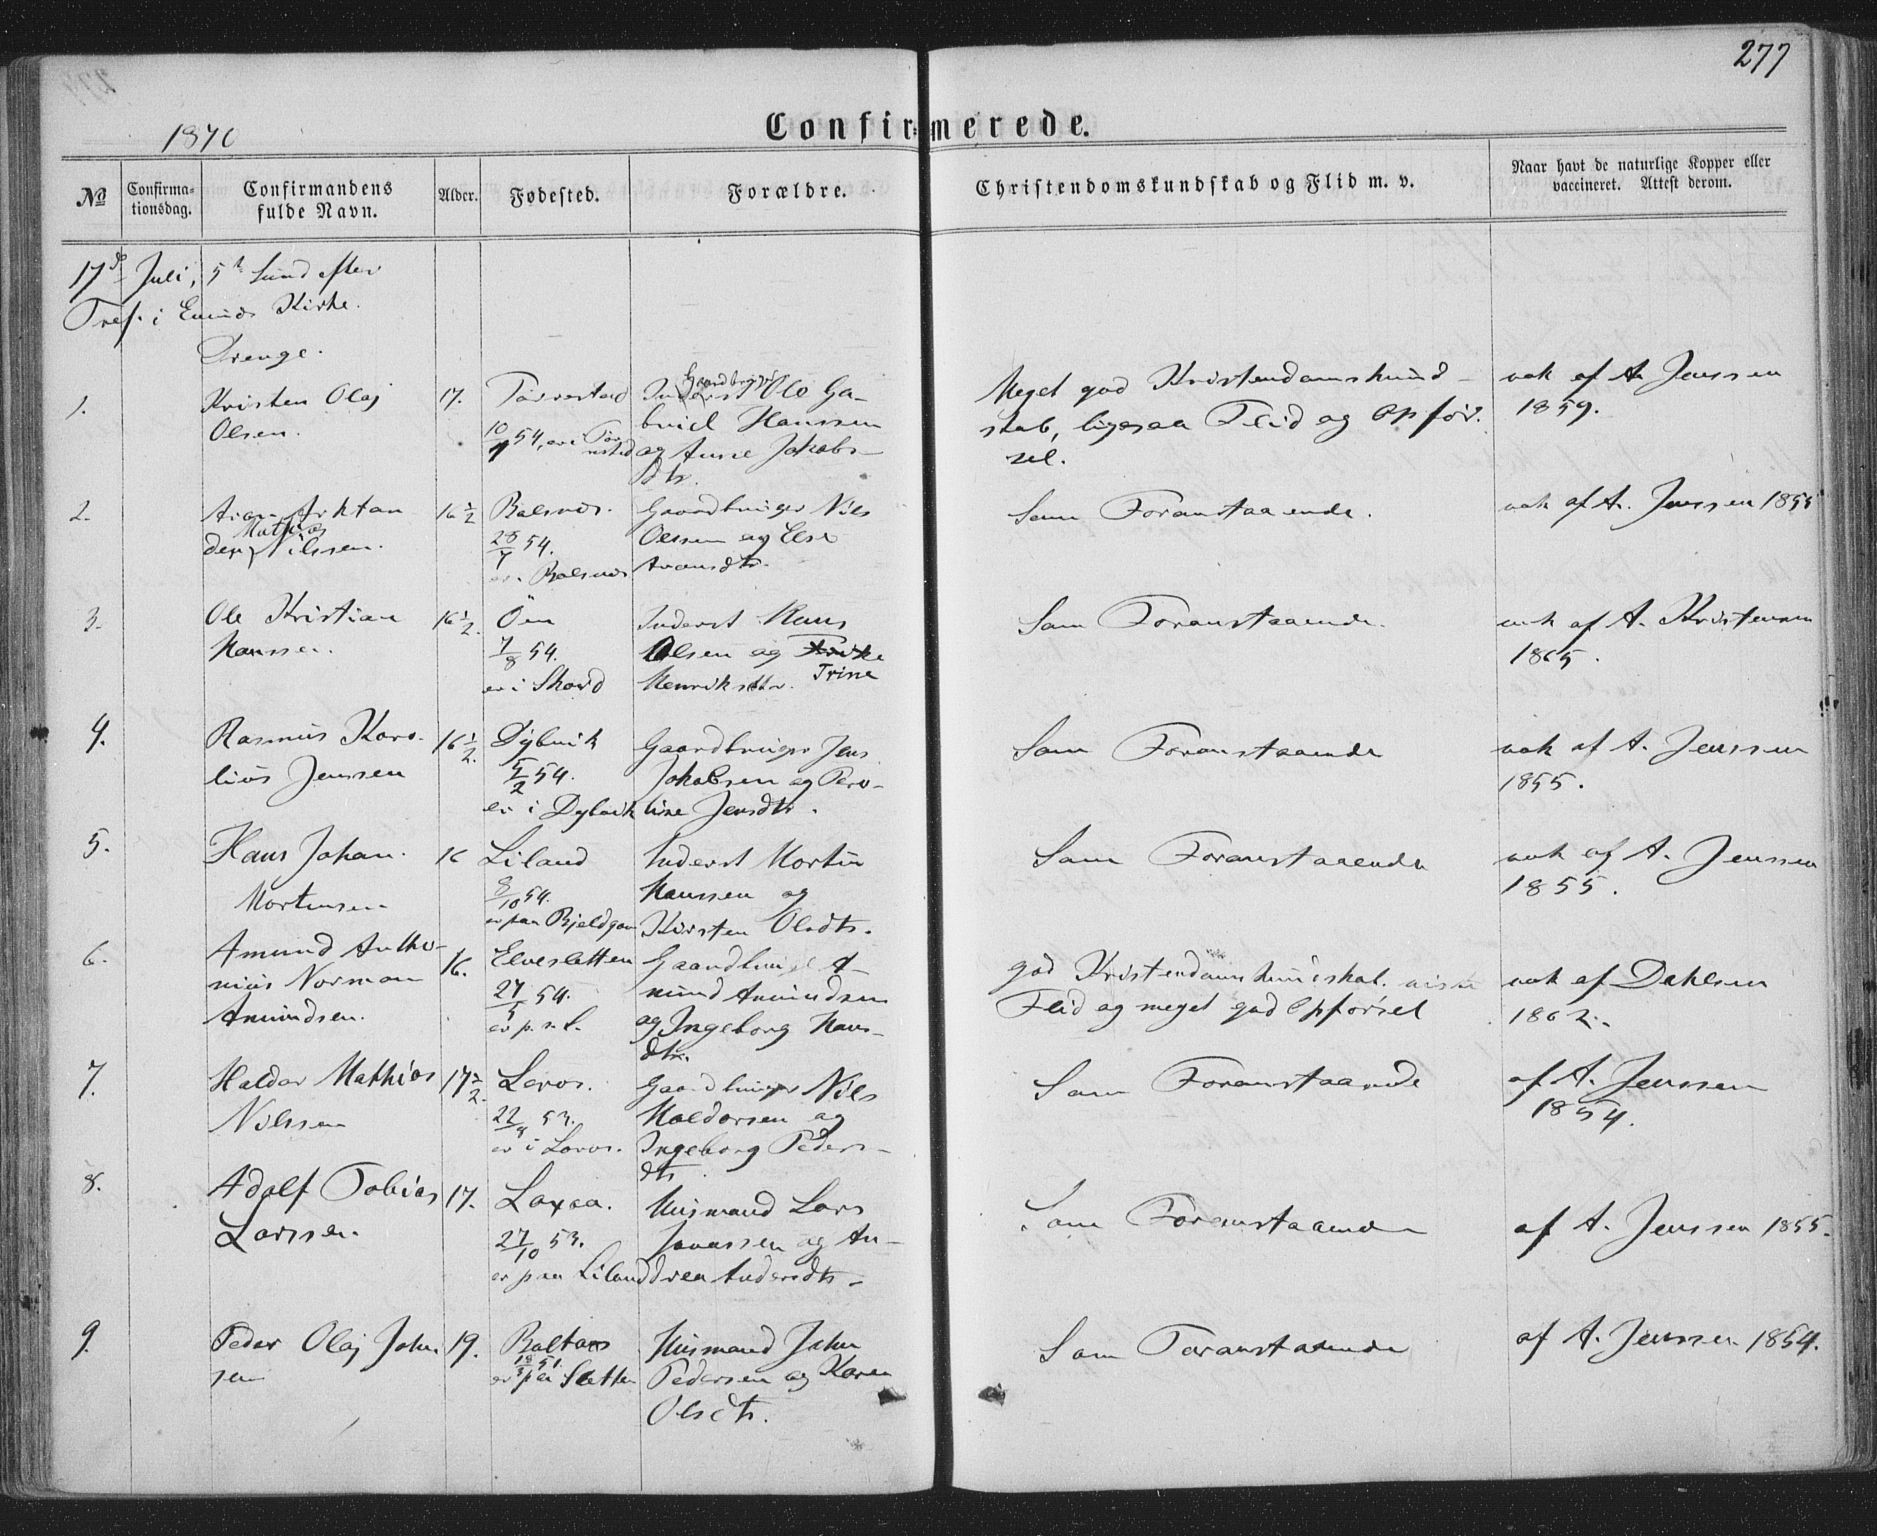 277
1870
Confirmerede.
№
Confirma-
tionsdag.
Confirmandens
fulde Navn.
Alder.
Fødested.
Forældre.
Christendomskundskab og Flid m. v.
Naar havt de naturlige Kopper eller
vaccineret. Attest derom.
17de Juli, 5te Sund efter
Tref. i Evends Kirke.
Drenge.
1.
Kristen Olaj
Olsen.
17.
Taarrestad
10/ 54, er i
Gaardbruger
Inderst Ole Ga-
briel Hanssen
og Anne Jakobs-
dtr.
Meget god Kristendomskund-
skab, ligesaa Flid og Opfør-
sel.
vak af A. Jenssen
1859.
2.
Mathias
Nilssen.
16 1/2
Balsnes.
28/7 54.
er i Balsnes
Gaardbruger Nils
Olssen og Else
Aransdtr.
Som Foranstaaende.
vak af A. Jenssen 1855
3.
Ole Kristian
Hanssen.
16 1/2.
Öen
7/8 54.
er i Skord
Inderst Hans
Olsen og
Trine
Henriksdtr.
Som Foranstaaende.
vak af A. Kristensen
1865.
4.
Rasmus Karo-
lius Jenssen
16 1/2.
Dybvik
5/2 54.
er i Dybvik
Gaardbruger Jens
Jakobsen og Pero-
line Jensdtr.
Som Foranstaaende
vak af A. Jenssen
1855.
5.
Hans Johan
Mortensen
16
Liland
8/10 54.
er paa
Inderst Mortin
Hanssen og
Kirsten Olsdtr.
Som Foranstaaende
vak af A. Jenssen
1855.
6.
Amund Antho-
nius Norman
Amundsen.
16.
Elvesletten
27/ 54.
er p. s. f.
Gaardbruger A-
mund Amundsen
og Ingeborg Hans-
dtr.
god Kristendomskundskab.
Flid og meget god Opførsel
vak af Dahlsen
1862.
7.
Haldor Mathias
Nilssen
17 1/2.
Leros.
22/ 53.
er i Leros.
Gaardbruger Nils
Haldorsen og
Ingeborg Peders-
dtr.
Som Foranstaaende
af A. Jenssen
1854.
8.
Adolf Tobias
Larssen.
17.
Laxaa.
27/10 53.
er paa Liland
Husmand Lars
Jonassen og An-
drea Andersdtr.
Som Foranstaaende
af A. Jenssen 1855.
9.
Peder Olaj John
sen
19.
18/ 51.
er paa Sletten
Husmand John
Pedersen og Karen
Olsdtr.
Som Foranstaaende
af A. Jenssen 1854.